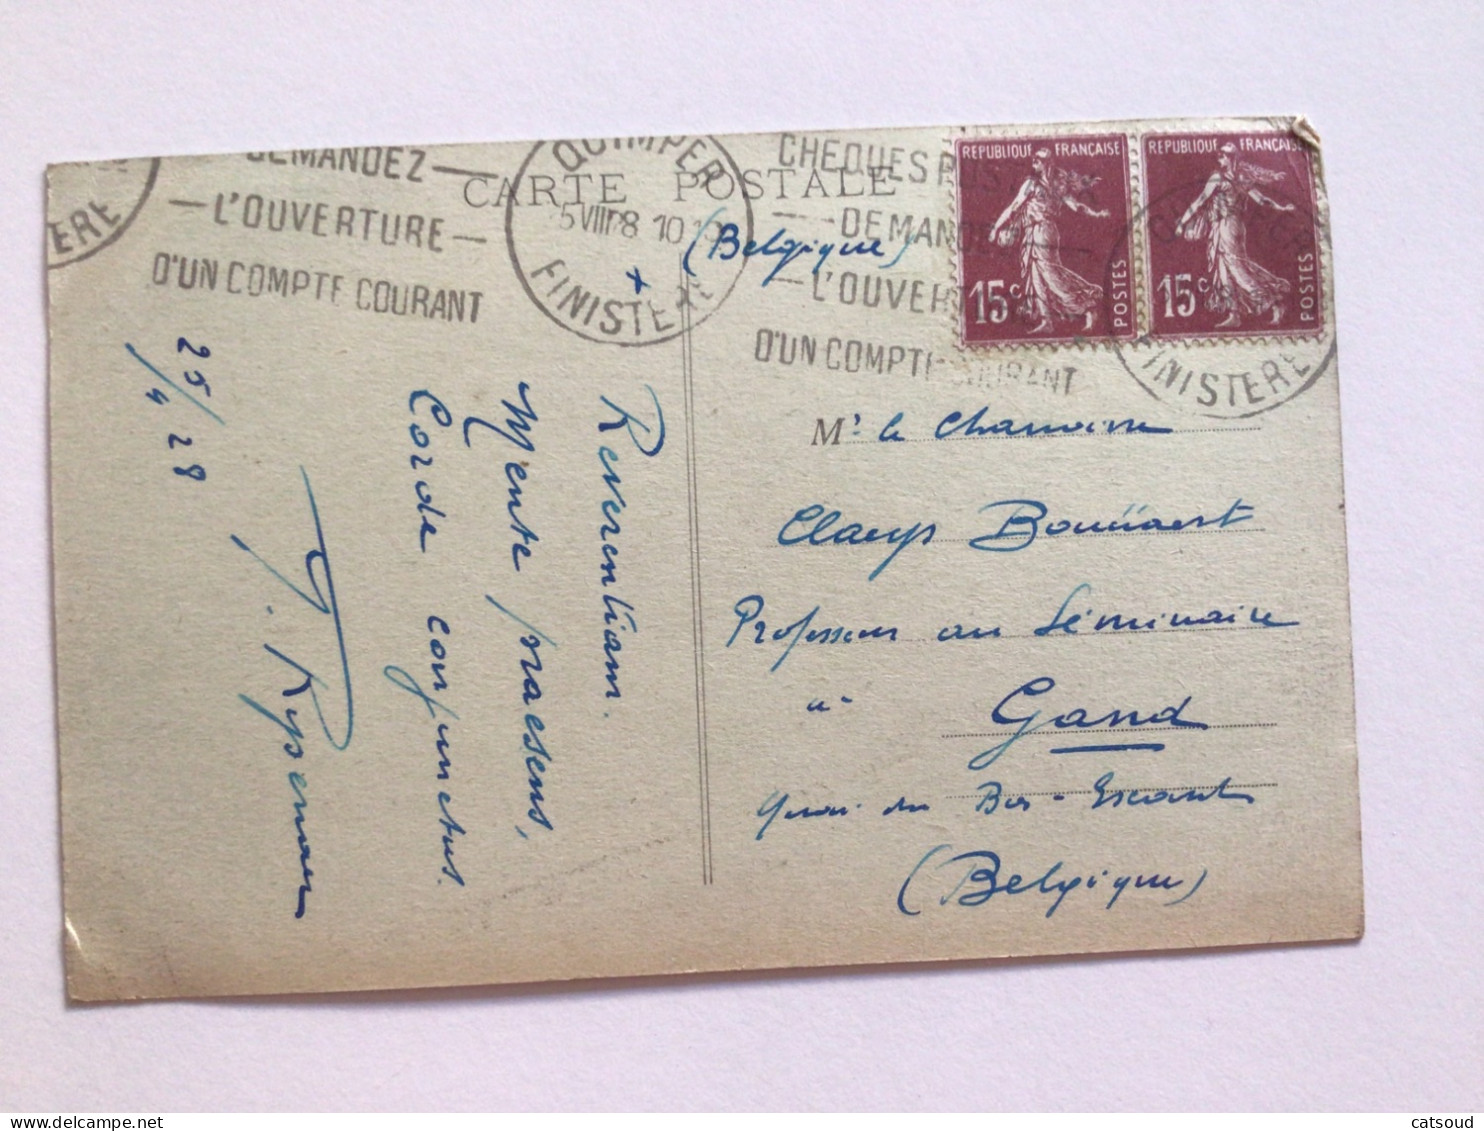 DEMANDEZ
L'OUVERTURE
D'UN COMPTE COURANT
ERE
QUIMPER
FINISTERE
CARTE POSTALE
(Belgique)
CHEQUES
DEMANDEZ
L'OUVERTURE
D'UN COMPTE COURANT
REPUBLIQUE FRANÇAISE
15c
POSTES
REPUBLIQUE FRANÇAISE
15c
POSTES
FINISTERE
25/4 28
+
Reverentiam.
Mente praesens,
Corde conjunctus.
Mr le Chanoine
Claeys Bouüaert
Professeur au Séminaire
à
Gand
Quai du Bas-Escaut
(Belgique)
catsoud